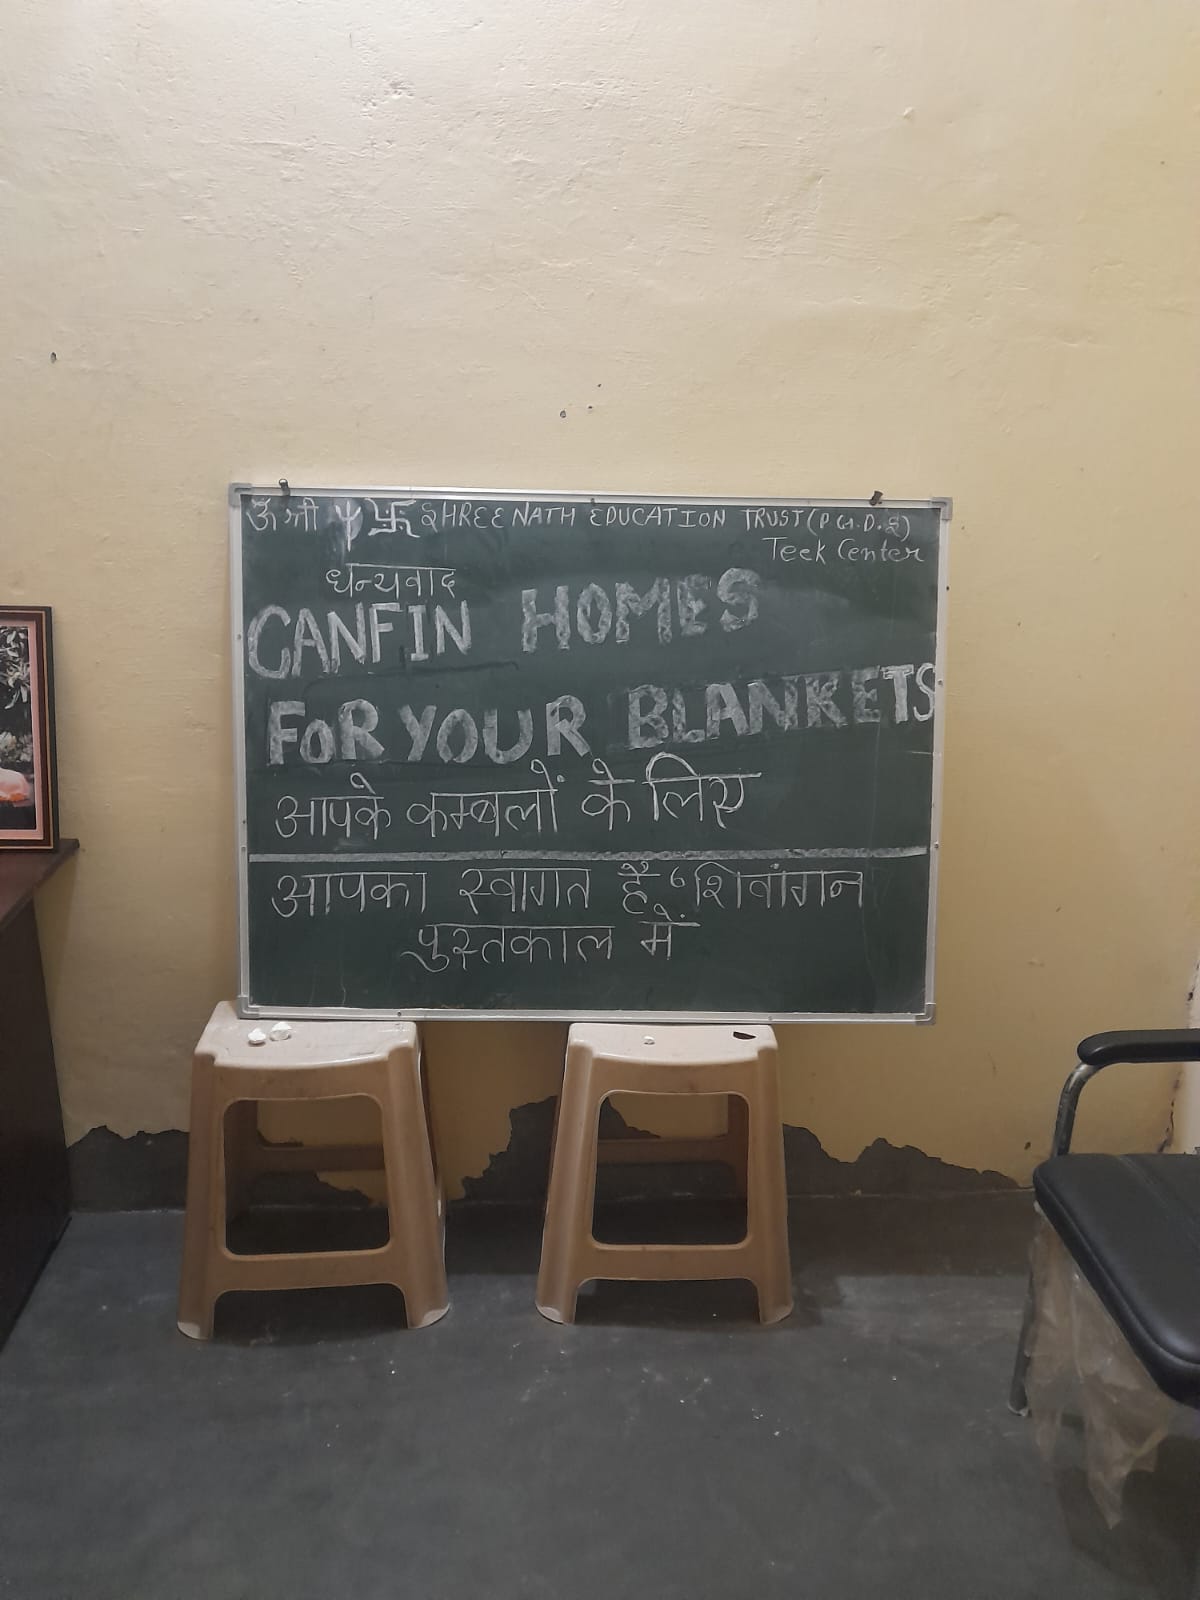 ॐ श्री 卐 SHREE NATH EDUCATION TRUST (P.G.D.S)
Teck Center
धन्यवाद
CANFIN HOMES
FOR YOUR BLANKETS
आपके कम्बलों के लिए
आपका स्वागत है 'शिवांगन
पुस्तकाल में